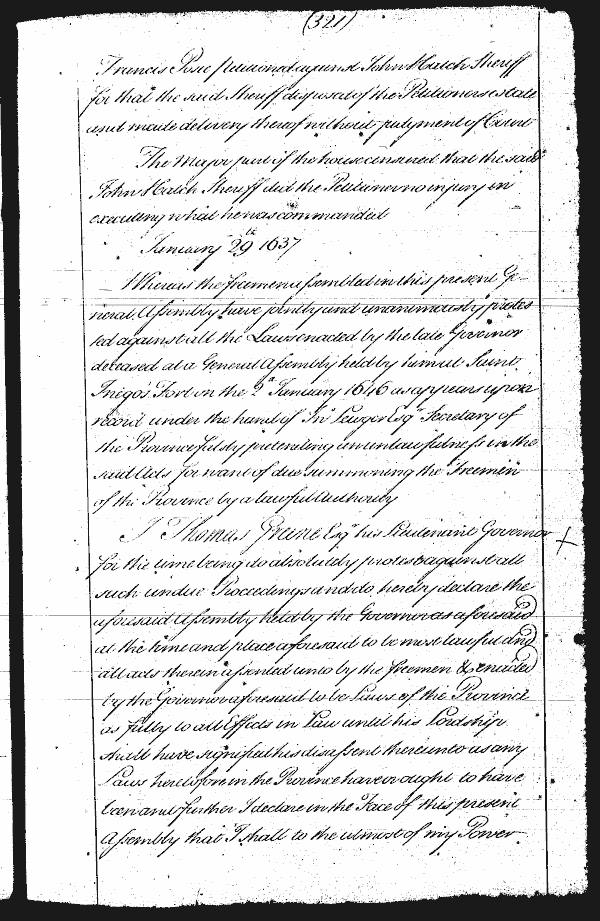 (321)
Francis Posie petitioned against John Hatch Sheriff
for that the said Sheriff disposed of the Petitioners estate
and made delivery thereof without judgment of Court
The Major part of the house censured that the said
John Hatch Sheriff did the Petitioner no injury in
executing what he was commanded
January 29th 1637
Whereas the freemen assembled in this present Ge-
neral Assembly have jointly and unanimously protes
ted against all the Laws enacted by the late Governor
deceased at a General Assembly held by him at Saint
Inego's Fort on the 2d January 1646 as appears upon
record under the hand of Jn° Lewger Esqr Secretary of
the Province falsly pretending an unlawfulness in the
said Acts for want of due summoning the Freemen
of the Province by a lawful Authority
I Thomas Greene Esqr his Lieutenant Governor
for the time being do absolutely protest against all
such undue Proceedings and do hereby declare the
aforesaid Assembly held by the Governor as aforesaid
at the time and place aforesaid to be most lawful and
all acts therein assented unto by the freemen & enacted
by the Governor aforesaid to be Laws of the Province
as fully to all Effects in Law until his Lordship
shall have signified his disassent thereunto as any
Laws heretofore in the Province have or ought to have
been and further I declare in the Face of this present
Assembly that I shall to the utmost of my Power